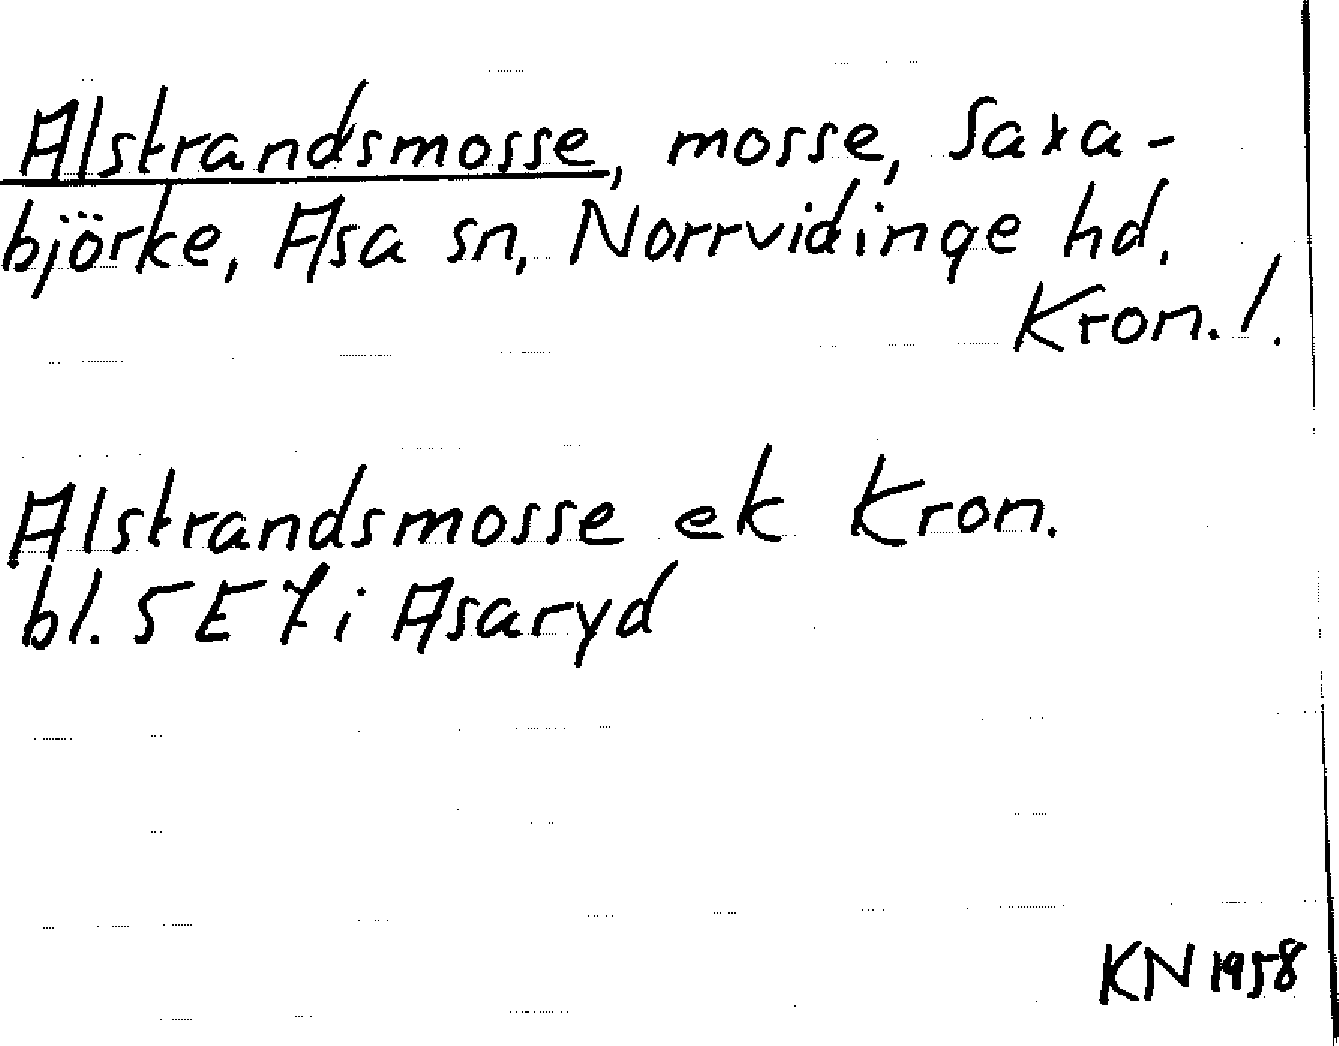 Alstrandsmosse, mosse, Saxa-
björke, Asa sn, Norrvidinge hd.
Kron. !.
Alstrandsmosse ek Kron.
bl. 5 E 7 i Asaryd
KN 1958